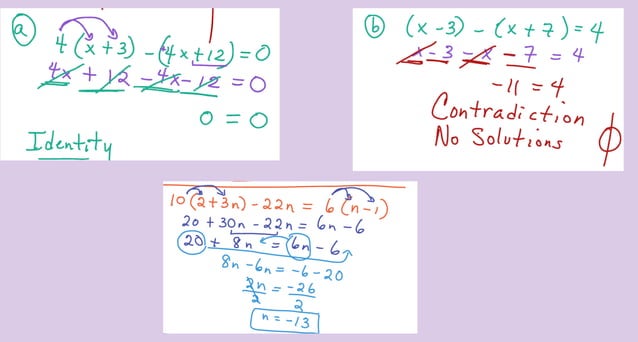 a
4(x+3) - (4x+12) = 0
4x + 12 - 4x - 12 = 0
0 = 0
Identity
b (x-3) - (x+7) = 4
x - 3 - x - 7 = 4
-11 = 4
Contradiction
No Solutions ϕ
10(2+3n) - 22n = 6(n-1)
20 + 30n - 22n = 6n - 6
20 + 8n = 6n - 6
8n - 6n = -6 - 20
2n/2 = -26/2
n = -13